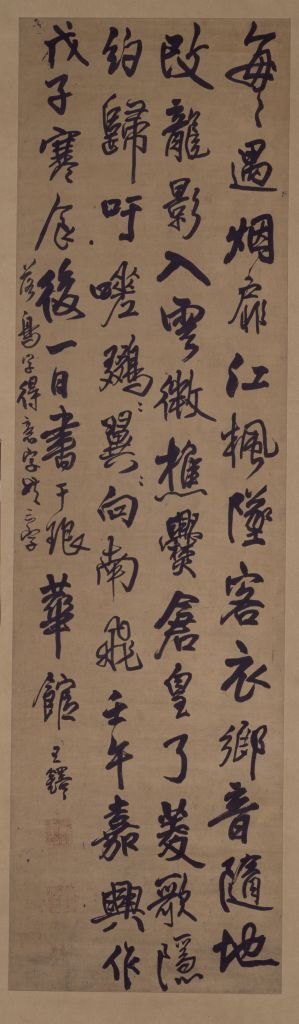 每每遇烟扉江楓墜客衣鄉音隨地
改龍影入雲微樵爨倉皇了菱歌隱
約歸吁嗟鷄翼向南飛壬午嘉興作
戊子寒食後一日書于琅華館王鐸
落鳥字得意字共三字